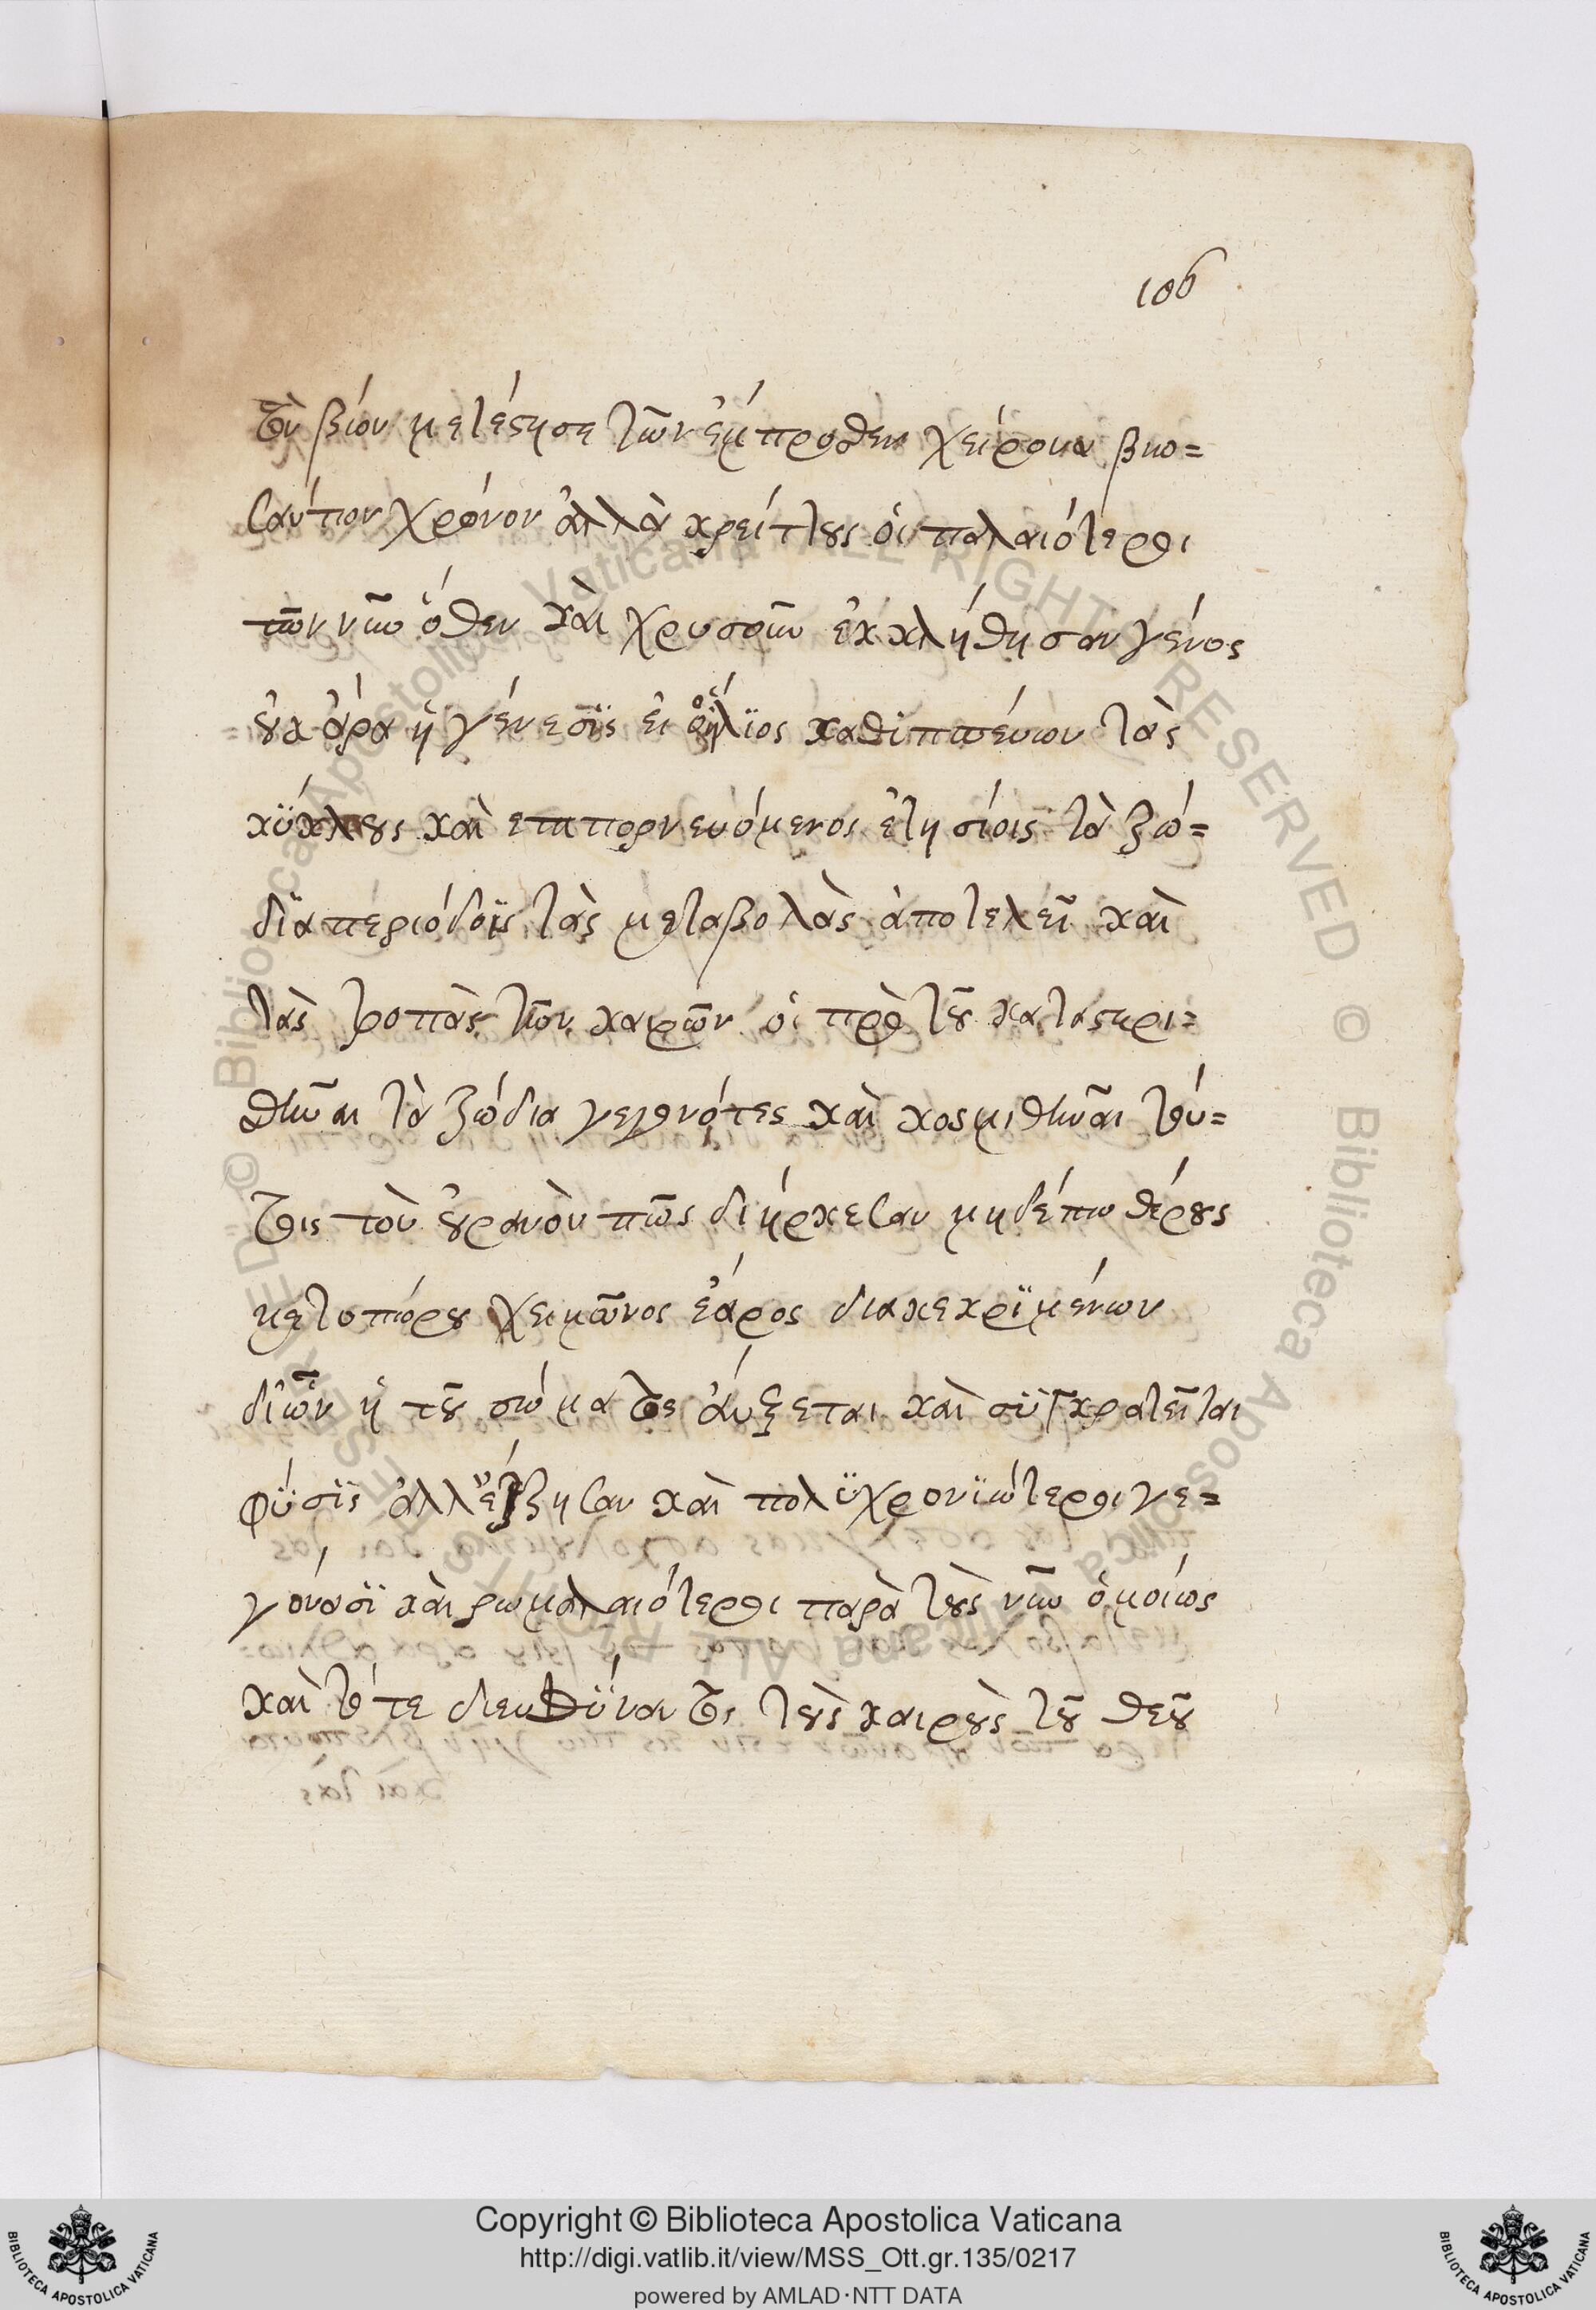 106
τὸν βίον μετέστησε τῶν ἔμπροσθεν χείρονα βιω=
σαύτων χρόνον ἀλλὰ κρείττους οἱ παλαιότεροι
τῶν νῦν ὅθεν καὶ χρυσοῦν ἐκκλήθησαν γένος
οὐκ ἄρα ἡ γένεσϊς εἰ ὁ ἥλϊος καθϊππεύων τὰς
κΰκλους καὶ επιπορνευόμενος ἐτησίοις τὰ ζώ=
δϊα περιόδοϊς τὰς μεταβολὰς ἀποτελεῖ καὶ
τὰς τροπὰς τῶν καιρῶν οἱ πρὸ τοῦ καταστηρι=
θῆναι τὰ ζώδια γεγονότες καὶ κοσμιθῆναι τού=
τοις τοὺ οὐρανὸν πῶς διήρκεσαν μηδέπω θέρους
μετοπόρου χειμῶνος ἔαρος διακεκρϊμένων
δϊ ὧν ἡ τοῦ σώματος ἄυξεται καὶ σϋγκρατεῖται
φΰσϊς ἀλλ' ἔζησαν καὶ πολϋχρονϊώτεροι γε=
γόνασϊ καὶ ρωμαλαιότεροι παρὰ τοὺς νῦν ὁμοίως
καὶ τότε διευθΰναντος τοὺς καιροὺς τοῦ θεοῦ
Copyright © Biblioteca Apostolica Vaticana
http://digi.vatlib.it/view/MSS_Ott.gr.135/0217
powered by AMLAD·NTT DATA
BIBLIOTECA APOSTOLICA VATICANA
BIBLIOTECA APOSTOLICA VATICANA